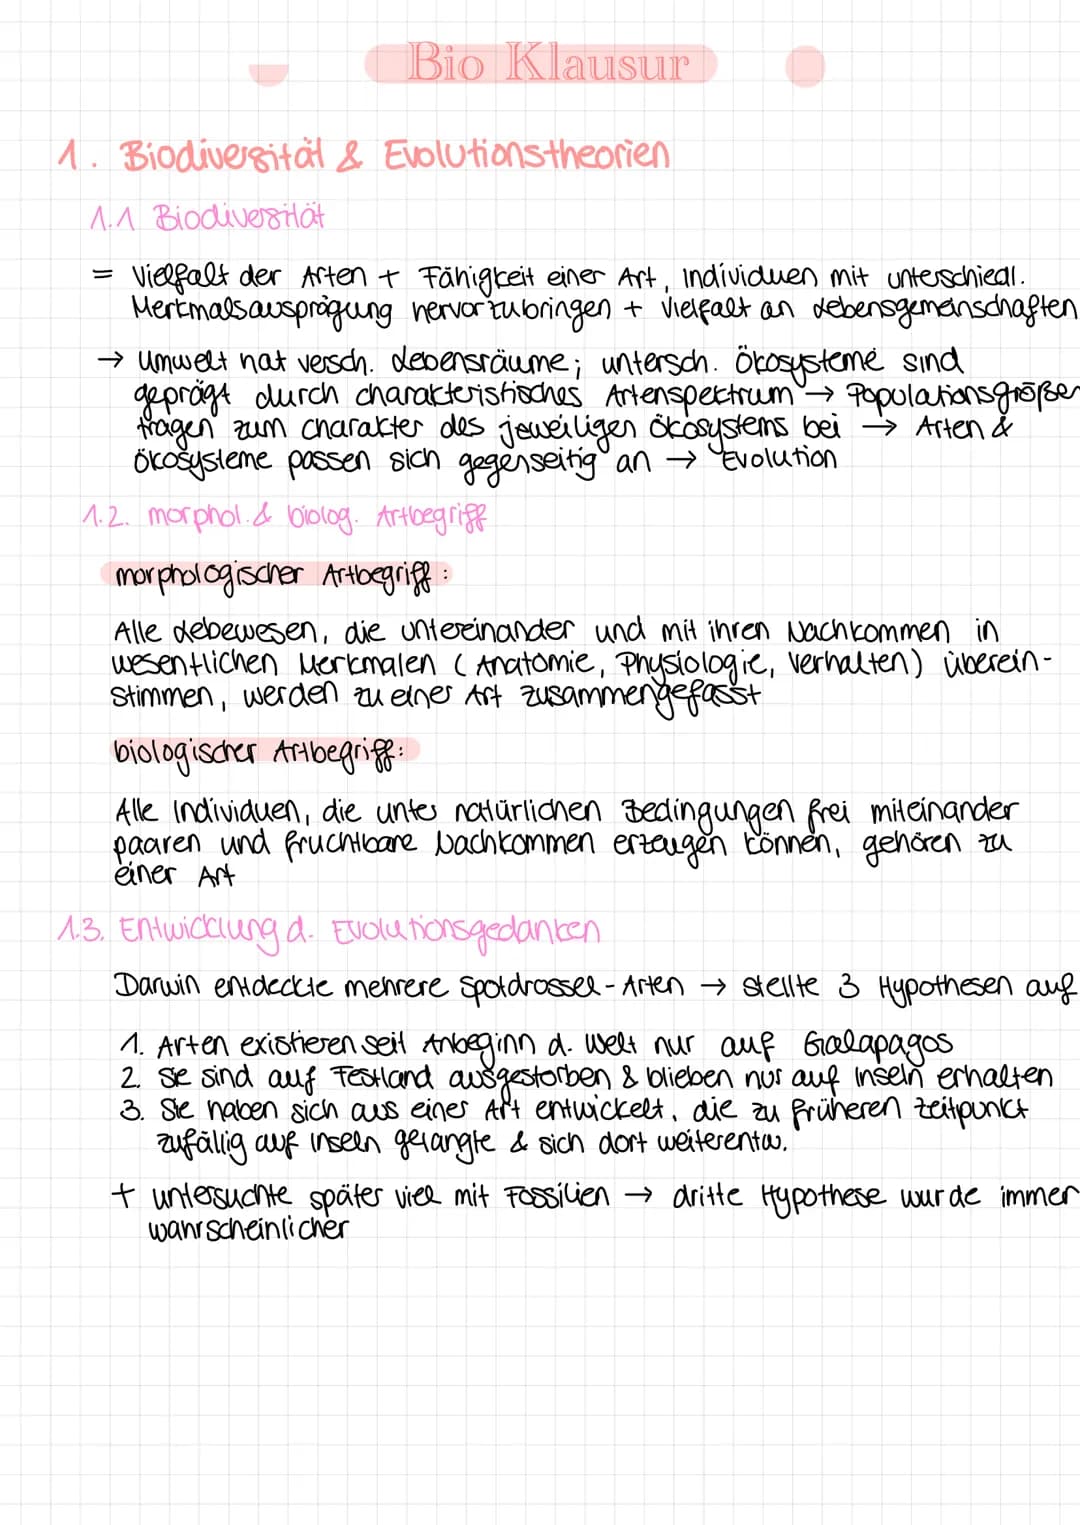 Bio Klausur
1. Biodiversität & Evolutionstheorien
1.1 Biodiversität
= Vielfalt der Arten + Fähigkeit einer Art, Individuen mit unterschiedl.
Merkmalsausprägung hervorzubringen + Vielfalt an Lebensgemeinschaften
→ Umwelt hat versch. Lebensräume; untersch. Ökosysteme sind
geprägt durch charakteristisches Artenspektrum → Populationsgrößen
tragen zum Charakter des jeweiligen Ökosystems bei → Arten &
Ökosysteme passen sich gegenseitig an → Evolution
1.2. morphol. & biolog. Artbegriff
morphologischer Artbegriff:
Alle Lebewesen, die untereinander und mit ihren Nachkommen in
wesentlichen Merkmalen (Anatomie, Physiologie, Verhalten) überein-
stimmen, werden zu einer Art zusammengefasst
biologischer Artbegriff:
Alle Individuen, die unter natürlichen Bedingungen frei miteinander
paaren und fruchtbare Nachkommen erzeugen können, gehören zu
einer Art
1.3. Entwicklung d. Evolutionsgedanken
Darwin entdeckte mehrere Spotdrossel-Arten → stellte 3 Hypothesen auf
1. Arten existieren seit Anbeginn d. Welt nur auf Galapagos
2. Sie sind auf Festland ausgestorben & blieben nur auf Inseln erhalten
3. Sie haben sich aus einer Art entwickelt, die zu früheren Zeitpunkt
zufällig auf Inseln gelangte & sich dort weiterentw.
+ untersuchte später viel mit Fossilien → dritte Hypothese wurde immer
wahrscheinlicher